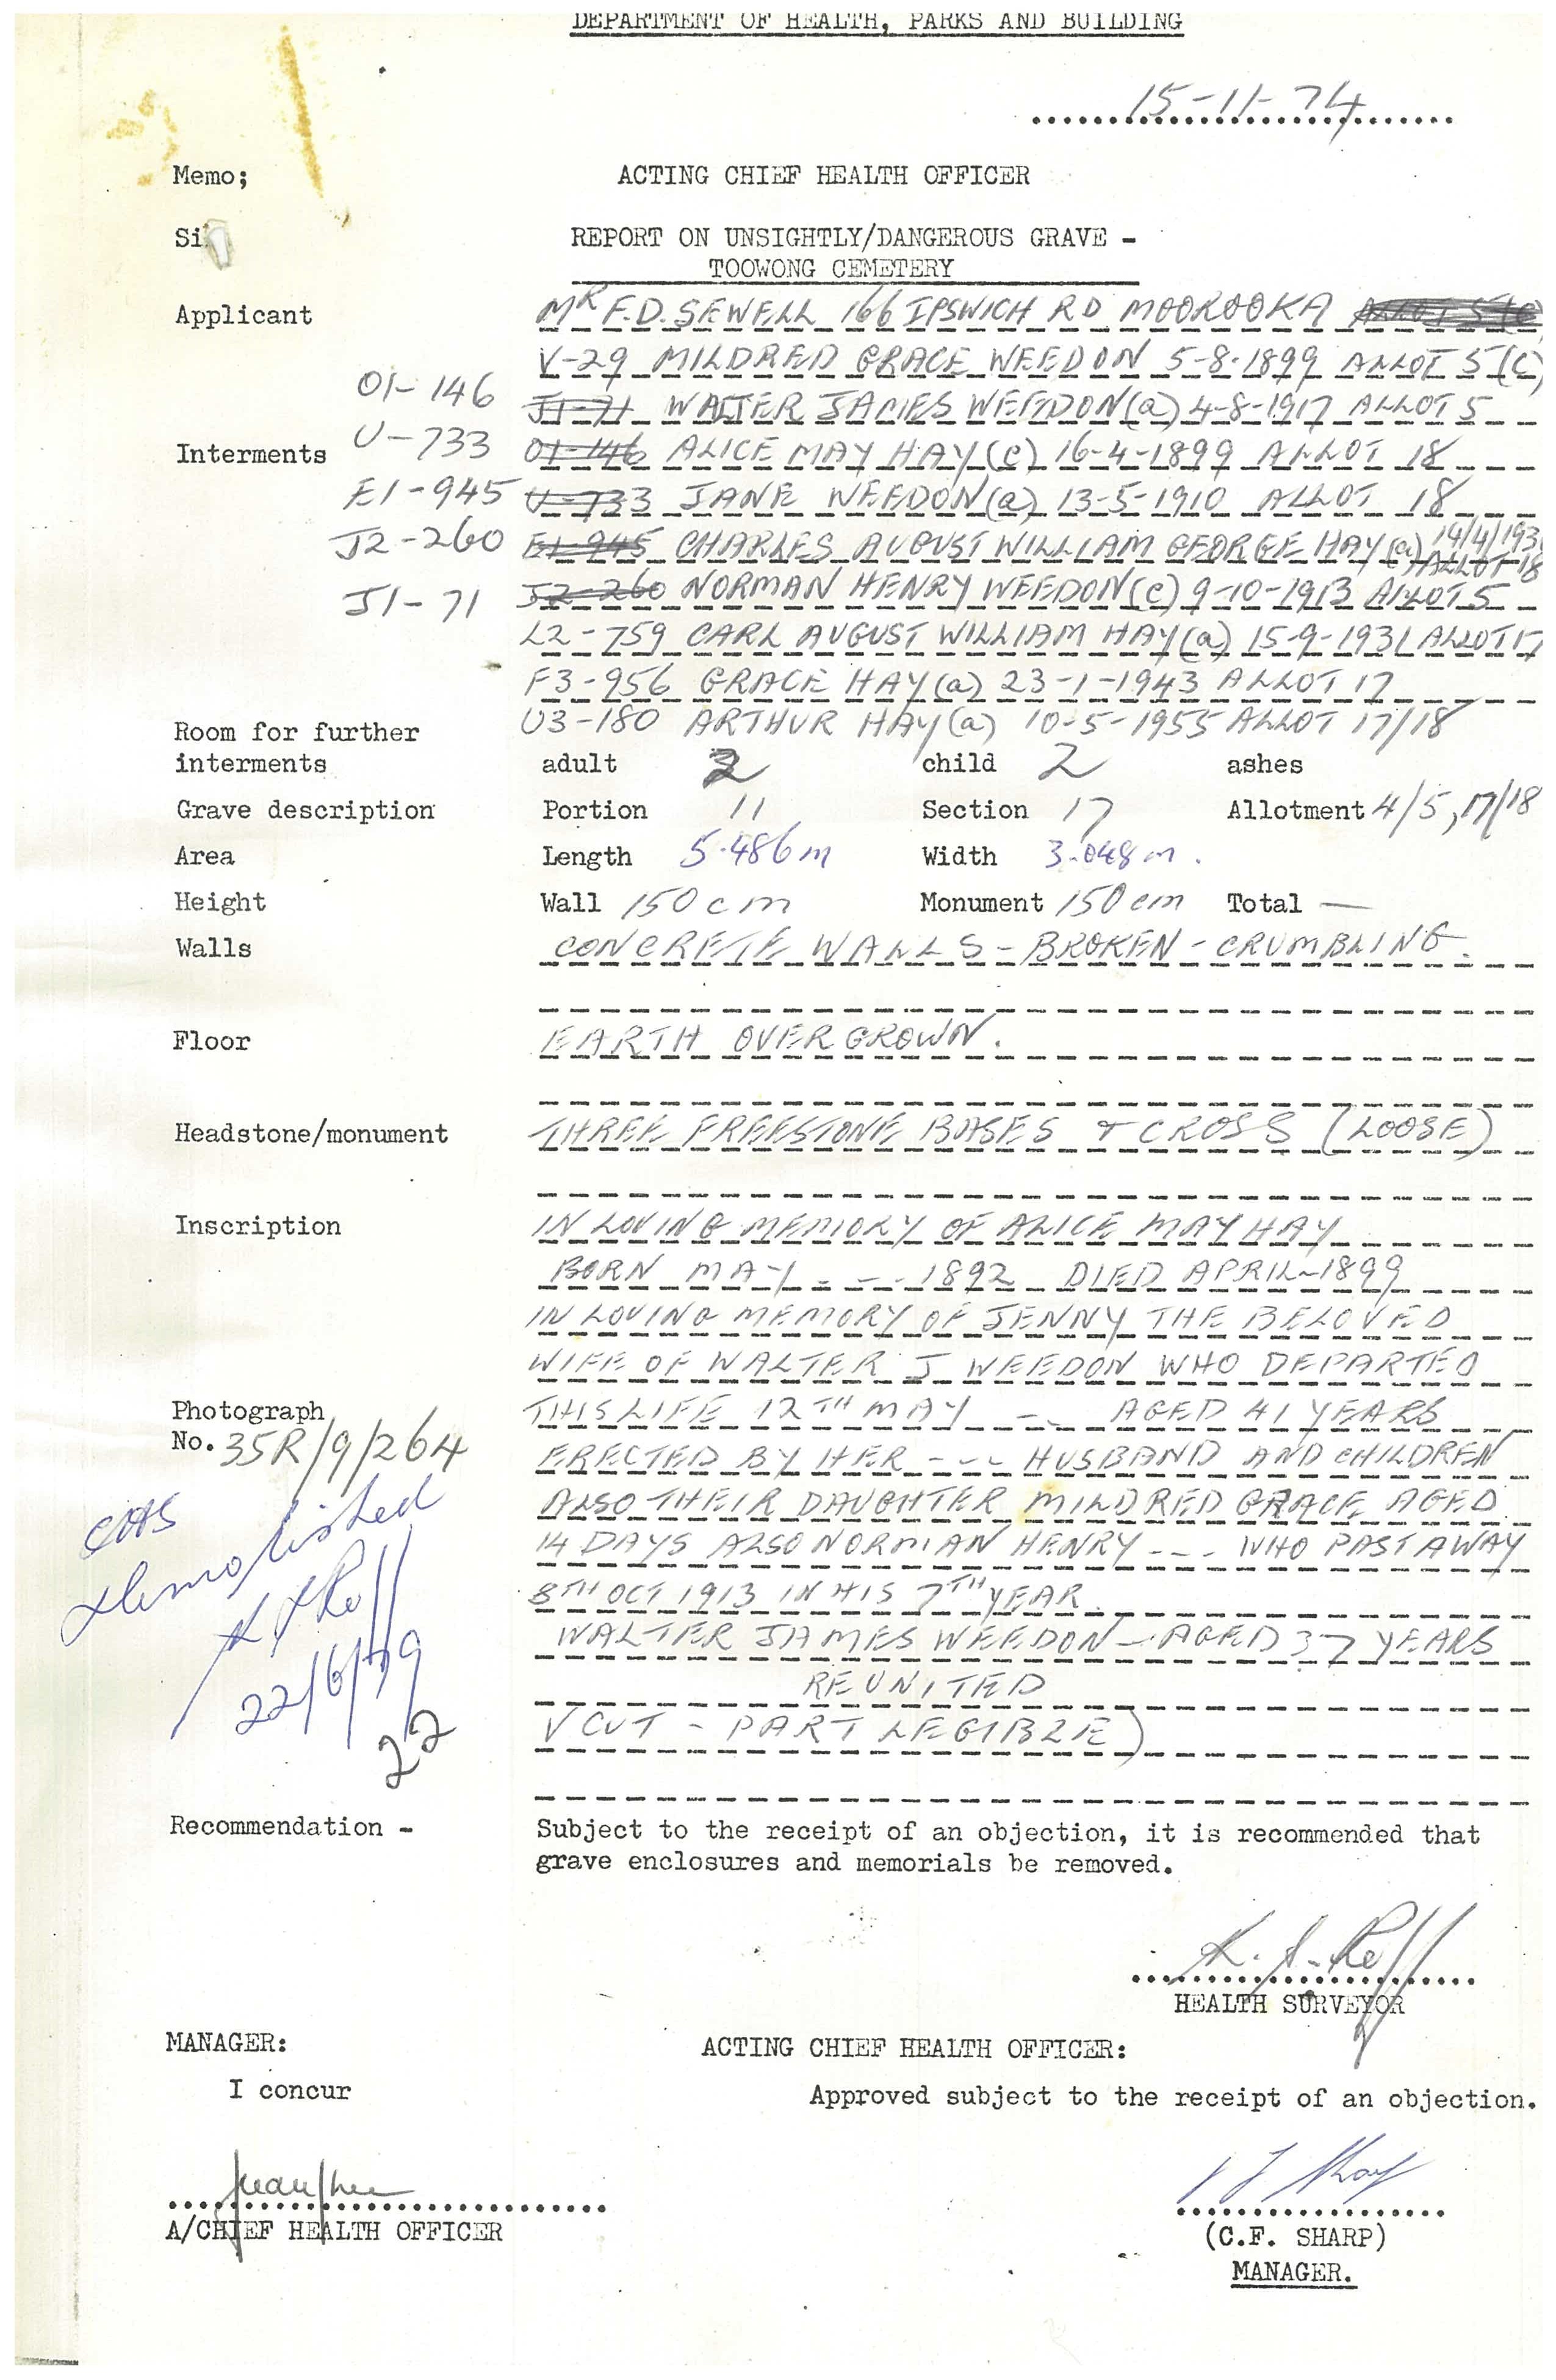 DEPARTMENT OF HEALTH, PARKS AND BUILDING
15-11-74
Memo; ACTING CHIEF HEALTH OFFICER
Si
REPORT ON UNSIGHTLY/DANGEROUS GRAVE -
TOOWONG CEMETERY
Applicant MR F.D. SEWELL 166 IPSWICH RD MOOROOKA
V-29 MILDRED GRACE WEEDON 5-8-1899 ALLOT 5 (C)
O1-146 J1-71 WALTER JAMES WEEDON (a) 4-8-1917 ALLOT 5
Interments U-733 O1-146 ALICE MAY HAY (C) 16-4-1899 ALLOT 18
E1-945 U-733 JANE WEEDON (a) 13-5-1910 ALLOT 18
J2-260 E1-945 CHARLES AUGUST WILLIAM GEORGE HAY (a) 14/4/193 ALLOT 18
J1-71 J2-260 NORMAN HENRY WEEDON (C) 9-10-1913 ALLOT 5
L2-759 CARL AUGUST WILLIAM HAY (a) 15-9-1931 ALLOT 17
F3-956 GRACE HAY (a) 23-1-1943 ALLOT 17
U3-180 ARTHUR HAY (a) 10-5-1955 ALLOT 17/18
Room for further
interments adult 2 child 2 ashes
Grave description Portion 11 Section 17 Allotment 4/5, 17/18
Area Length 5.486m Width 3.048m.
Height Wall 150cm Monument 150cm Total —
Walls CONCRETE WALLS - BROKEN - CRUMBLING.
Floor EARTH OVERGROWN.
Headstone/monument THREE FREESTONE BASES + CROSS (LOOSE)
Inscription IN LOVING MEMORY OF ALICE MAY HAY
BORN MAY - - - 1892 DIED APRIL-1899
IN LOVING MEMORY OF JENNY THE BELOVED
WIFE OF WALTER J WEEDON WHO DEPARTED
Photograph THIS LIFE 12TH MAY -- AGED 41 YEARS
No. 35R/9/264 ERECTED BY HER --- HUSBAND AND CHILDREN
ALSO THEIR DAUGHTER MILDRED GRACE AGED
14 DAYS ALSO NORMAN HENRY --- WHO PAST AWAY
8TH OCT 1913 IN HIS 7TH YEAR.
WALTER JAMES WEEDON - AGED 37 YEARS
REUNITED
V CUT - PART LEGIBLE)
demolished
22/6/79
22
Recommendation - Subject to the receipt of an objection, it is recommended that
grave enclosures and memorials be removed.
HEALTH SURVEYOR
MANAGER: ACTING CHIEF HEALTH OFFICER:
I concur Approved subject to the receipt of an objection.
A/CHIEF HEALTH OFFICER
(C.F. SHARP)
MANAGER.